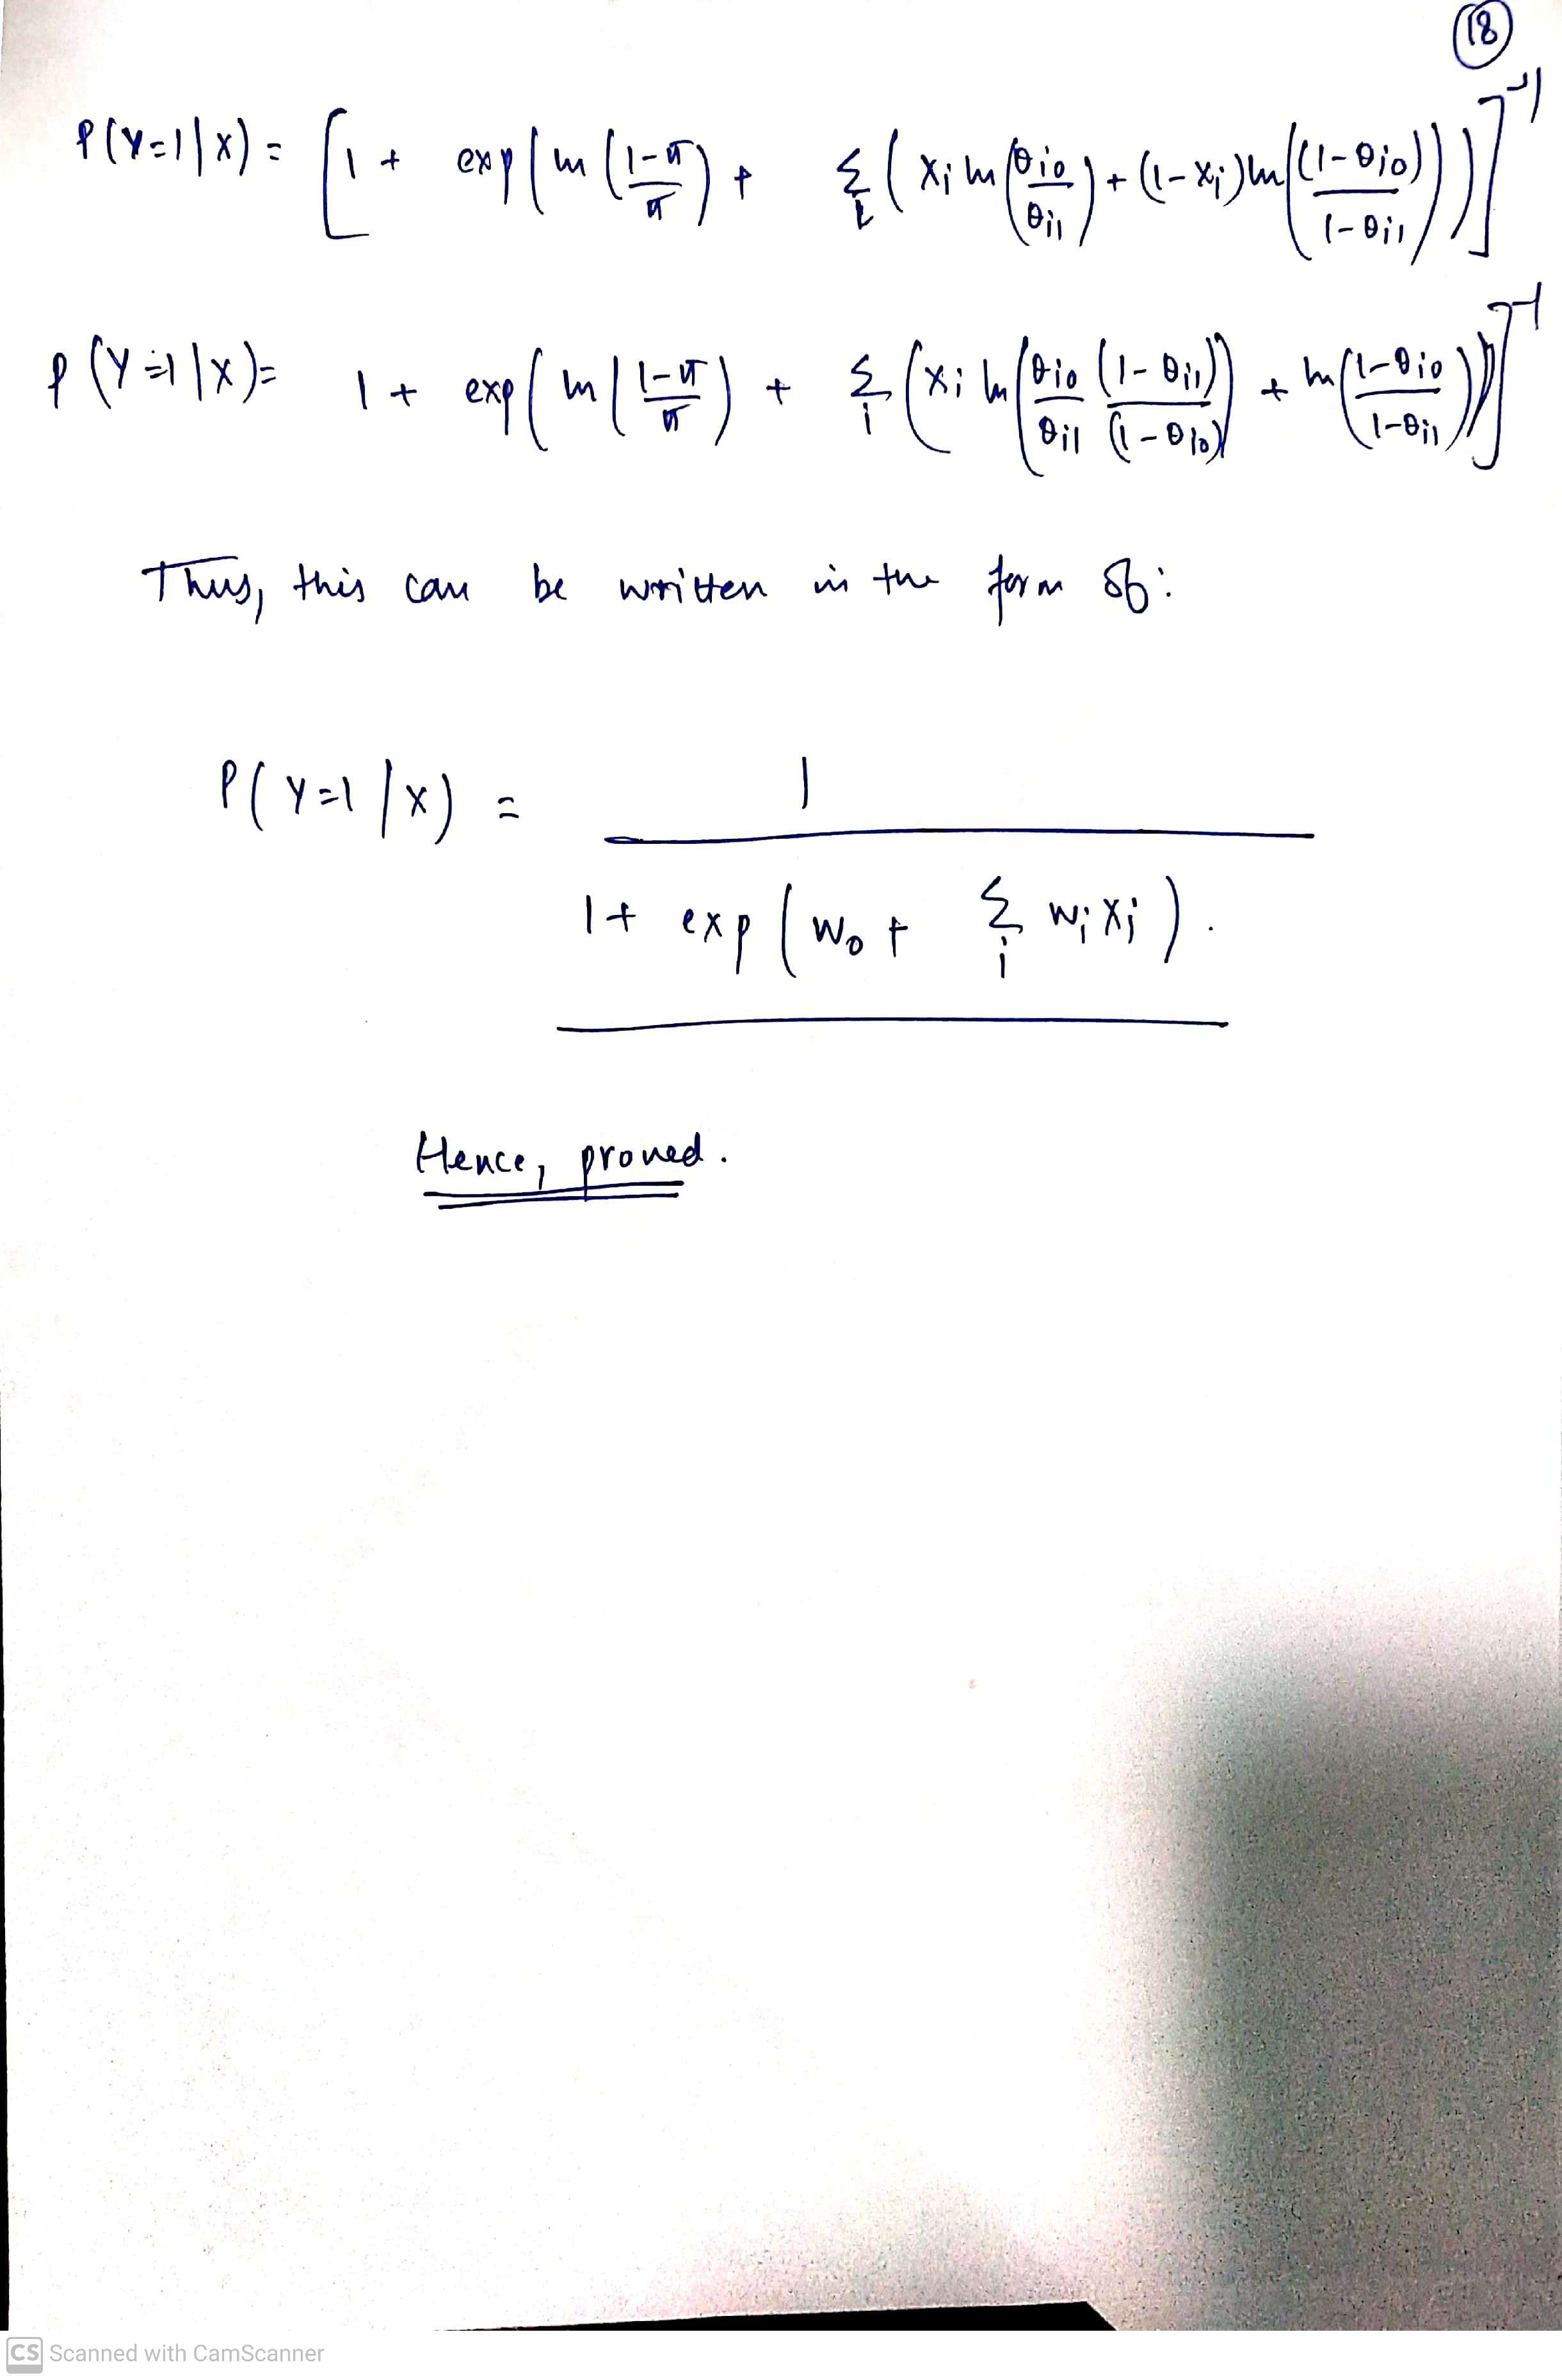 18
P(Y=1|X) = [1 + exp(ln(1-π/π) + Σ_i (X_i ln(θ_i0/θ_i1) + (1-X_i) ln((1-θ_i0)/1-θ_i1)))]^-1
P(Y=1|X) = 1 + exp(ln(1-π/π) + Σ_i (X_i ln(θ_i0 (1-θ_i1)/θ_i1 (1-θ_i0)) + ln(1-θ_i0/1-θ_i1)))]^-1
Thus, this can be written in the form of:
P(Y=1/X) = 1
1+ exp(w_0 + Σ_i w_i X_i).
Hence, proved.
CS Scanned with CamScanner